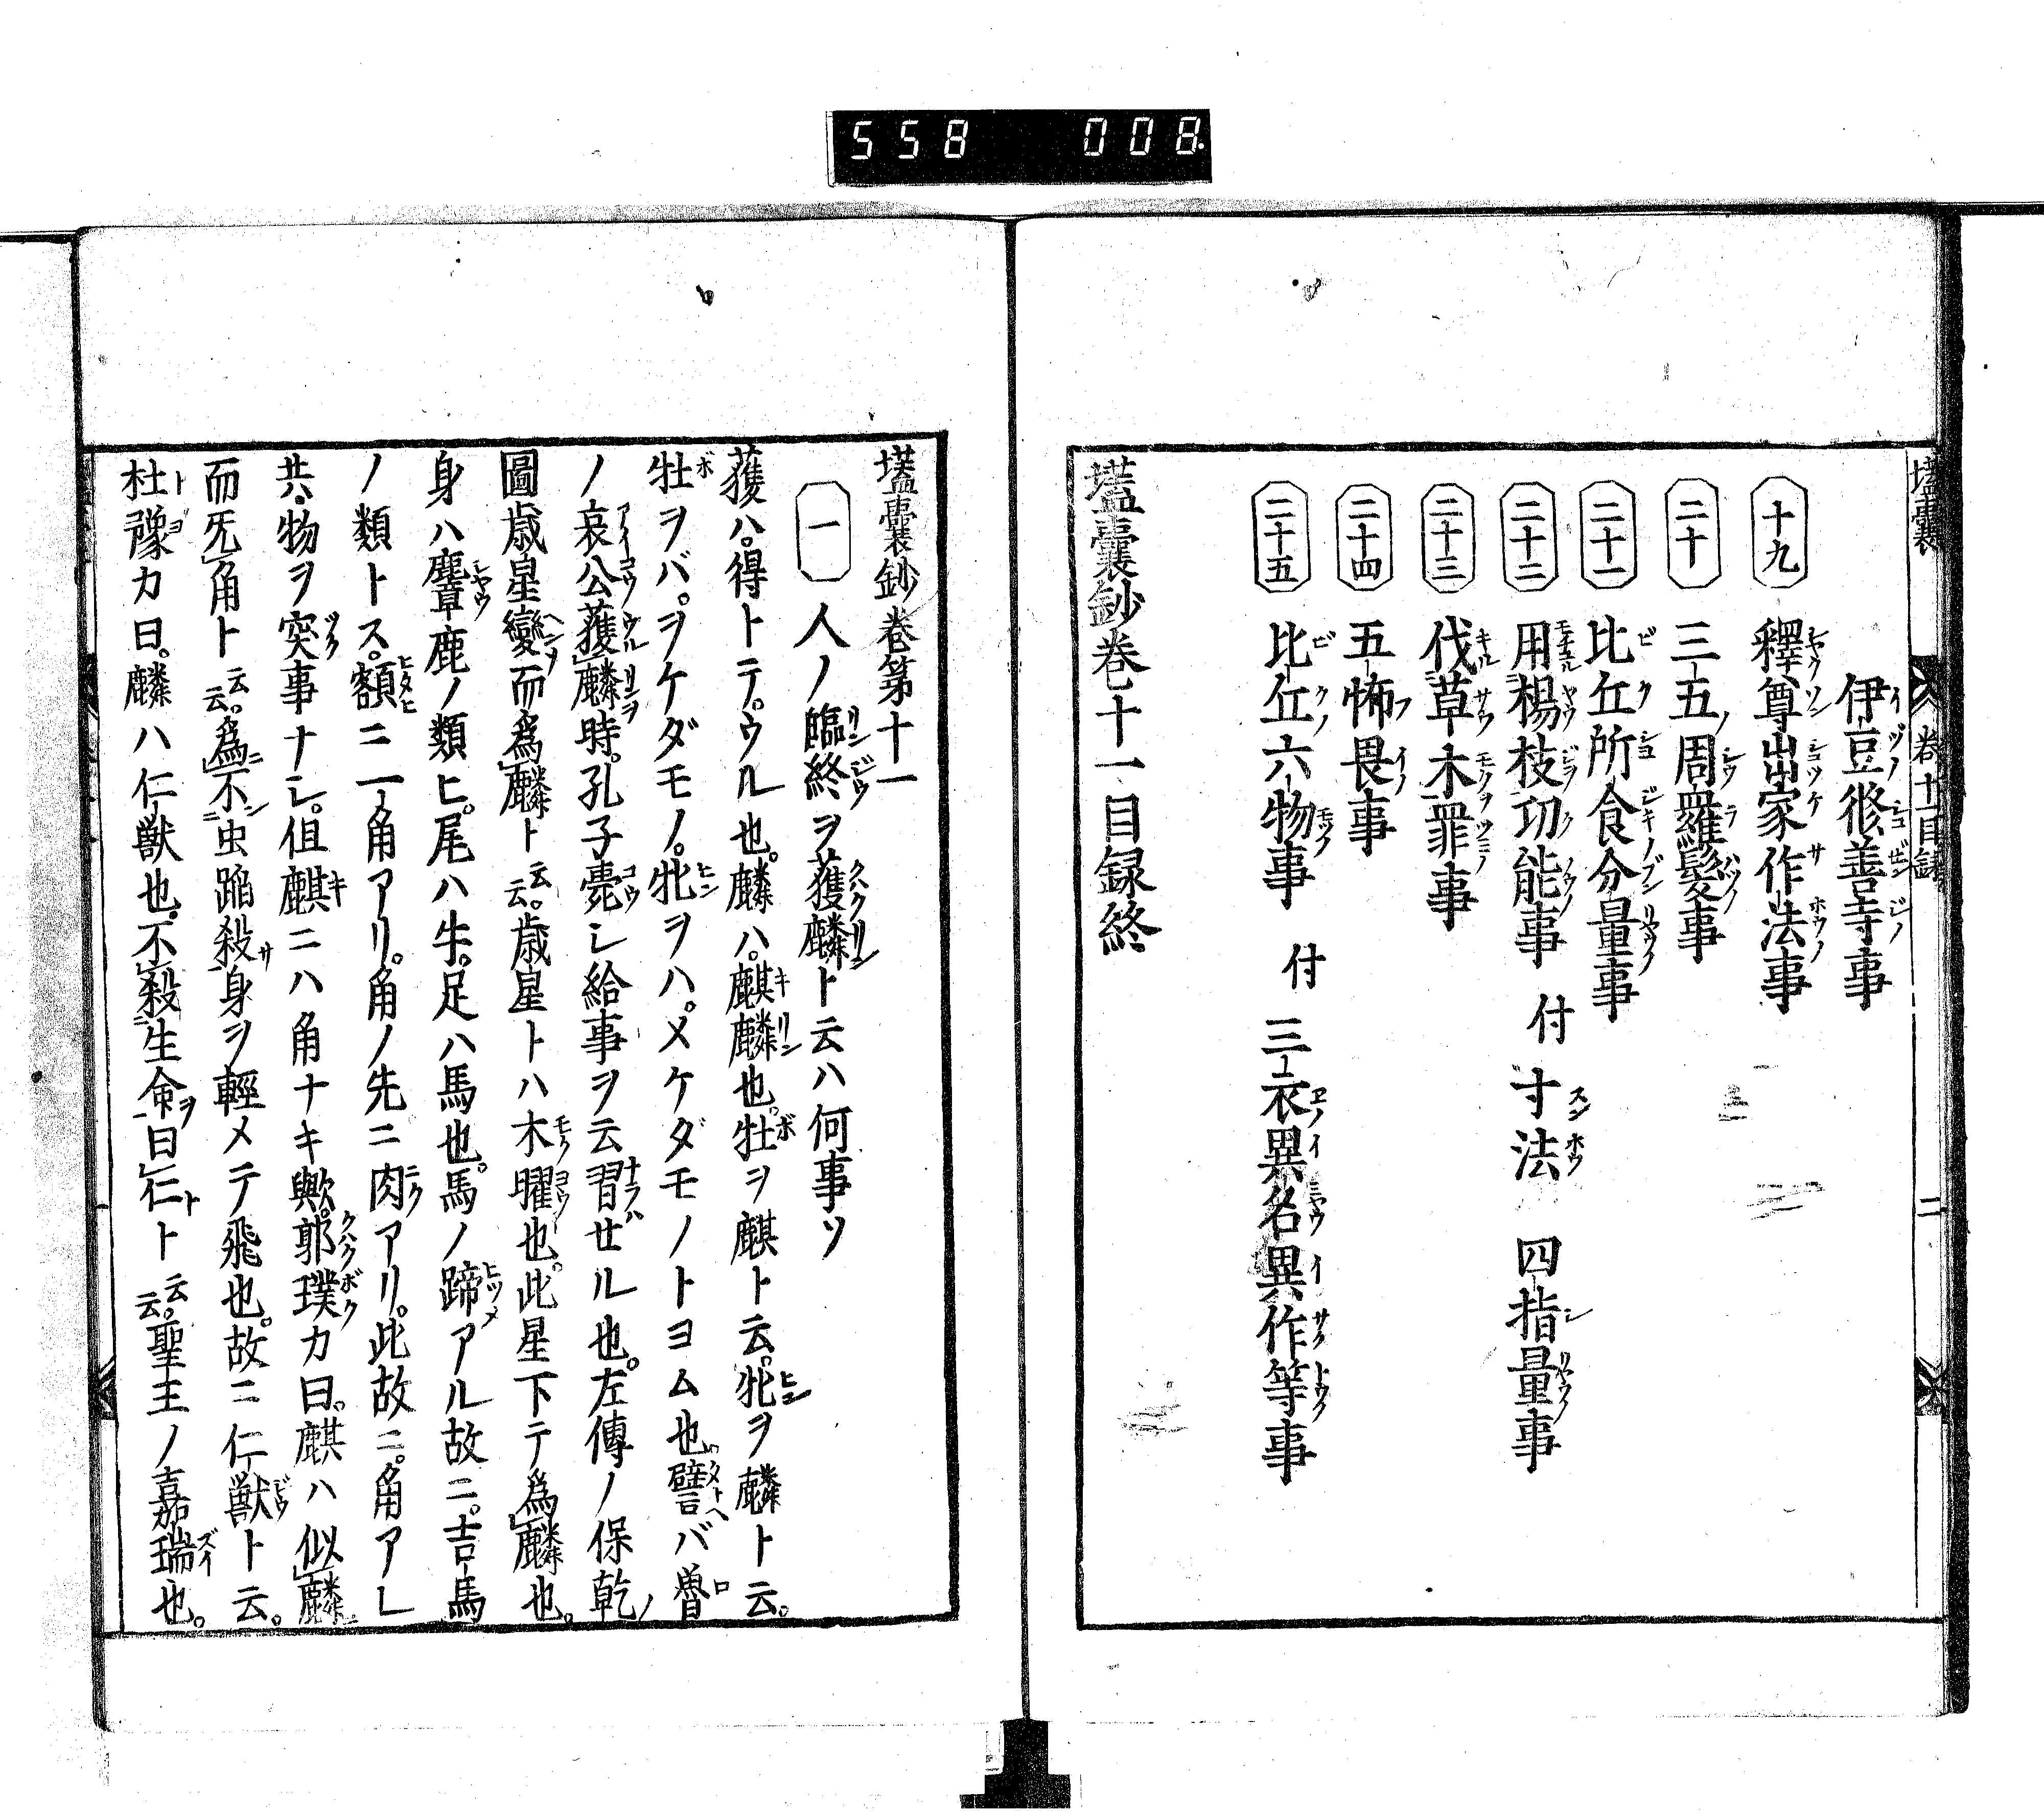 558 008
壒囊 巻十一目録 二
伊豆修善寺事
十九 釋尊出家作法事
二十 三五周羅髮事
二十一 比丘所食分量事
二十二 用楊枝功能事 付 寸法 四指量事
二十三 伐草木罪事
二十四 五怖畏事
二十五 比丘六物事 付 三衣異名異作等事
壒囊鈔巻十一目録終
壒囊鈔巻第十一
一 人ノ臨終ヲ獲麟ト云ハ何事ソ
獲ハ。得トテ。ウル也。麟ハ。麒麟也。牡ヲ麒ト云。牝ヲ麟ト云。
牡ヲバ。ヲケダモノ。牝ヲハ。メケダモノトヨム也。譬バ魯
ノ哀公獲麟時。孔子薨シ給事ヲ云習セル也。左傳ノ保乾
圖歳星變而爲麟ト云云。歳星トハ木曜也。此星下テ爲麟也。
身ハ麞鹿ノ類ヒ。尾ハ牛。足ハ馬也。馬ノ蹄アル故ニ。吉馬
ノ類トス。額ニ一角アリ。角ノ先ニ肉アリ。此故ニ。角アレ
共。物ヲ突事ナシ。但麒ニハ角ナキ歟。郭璞カ曰。麒ハ似麟
而旡角ト云云。爲不虫蹈殺身ヲ輕メテ飛也。故ニ仁獸ト云。
杜豫カ曰。麟ハ仁獸也。不殺生命曰仁ト云云。聖王ノ嘉瑞也。